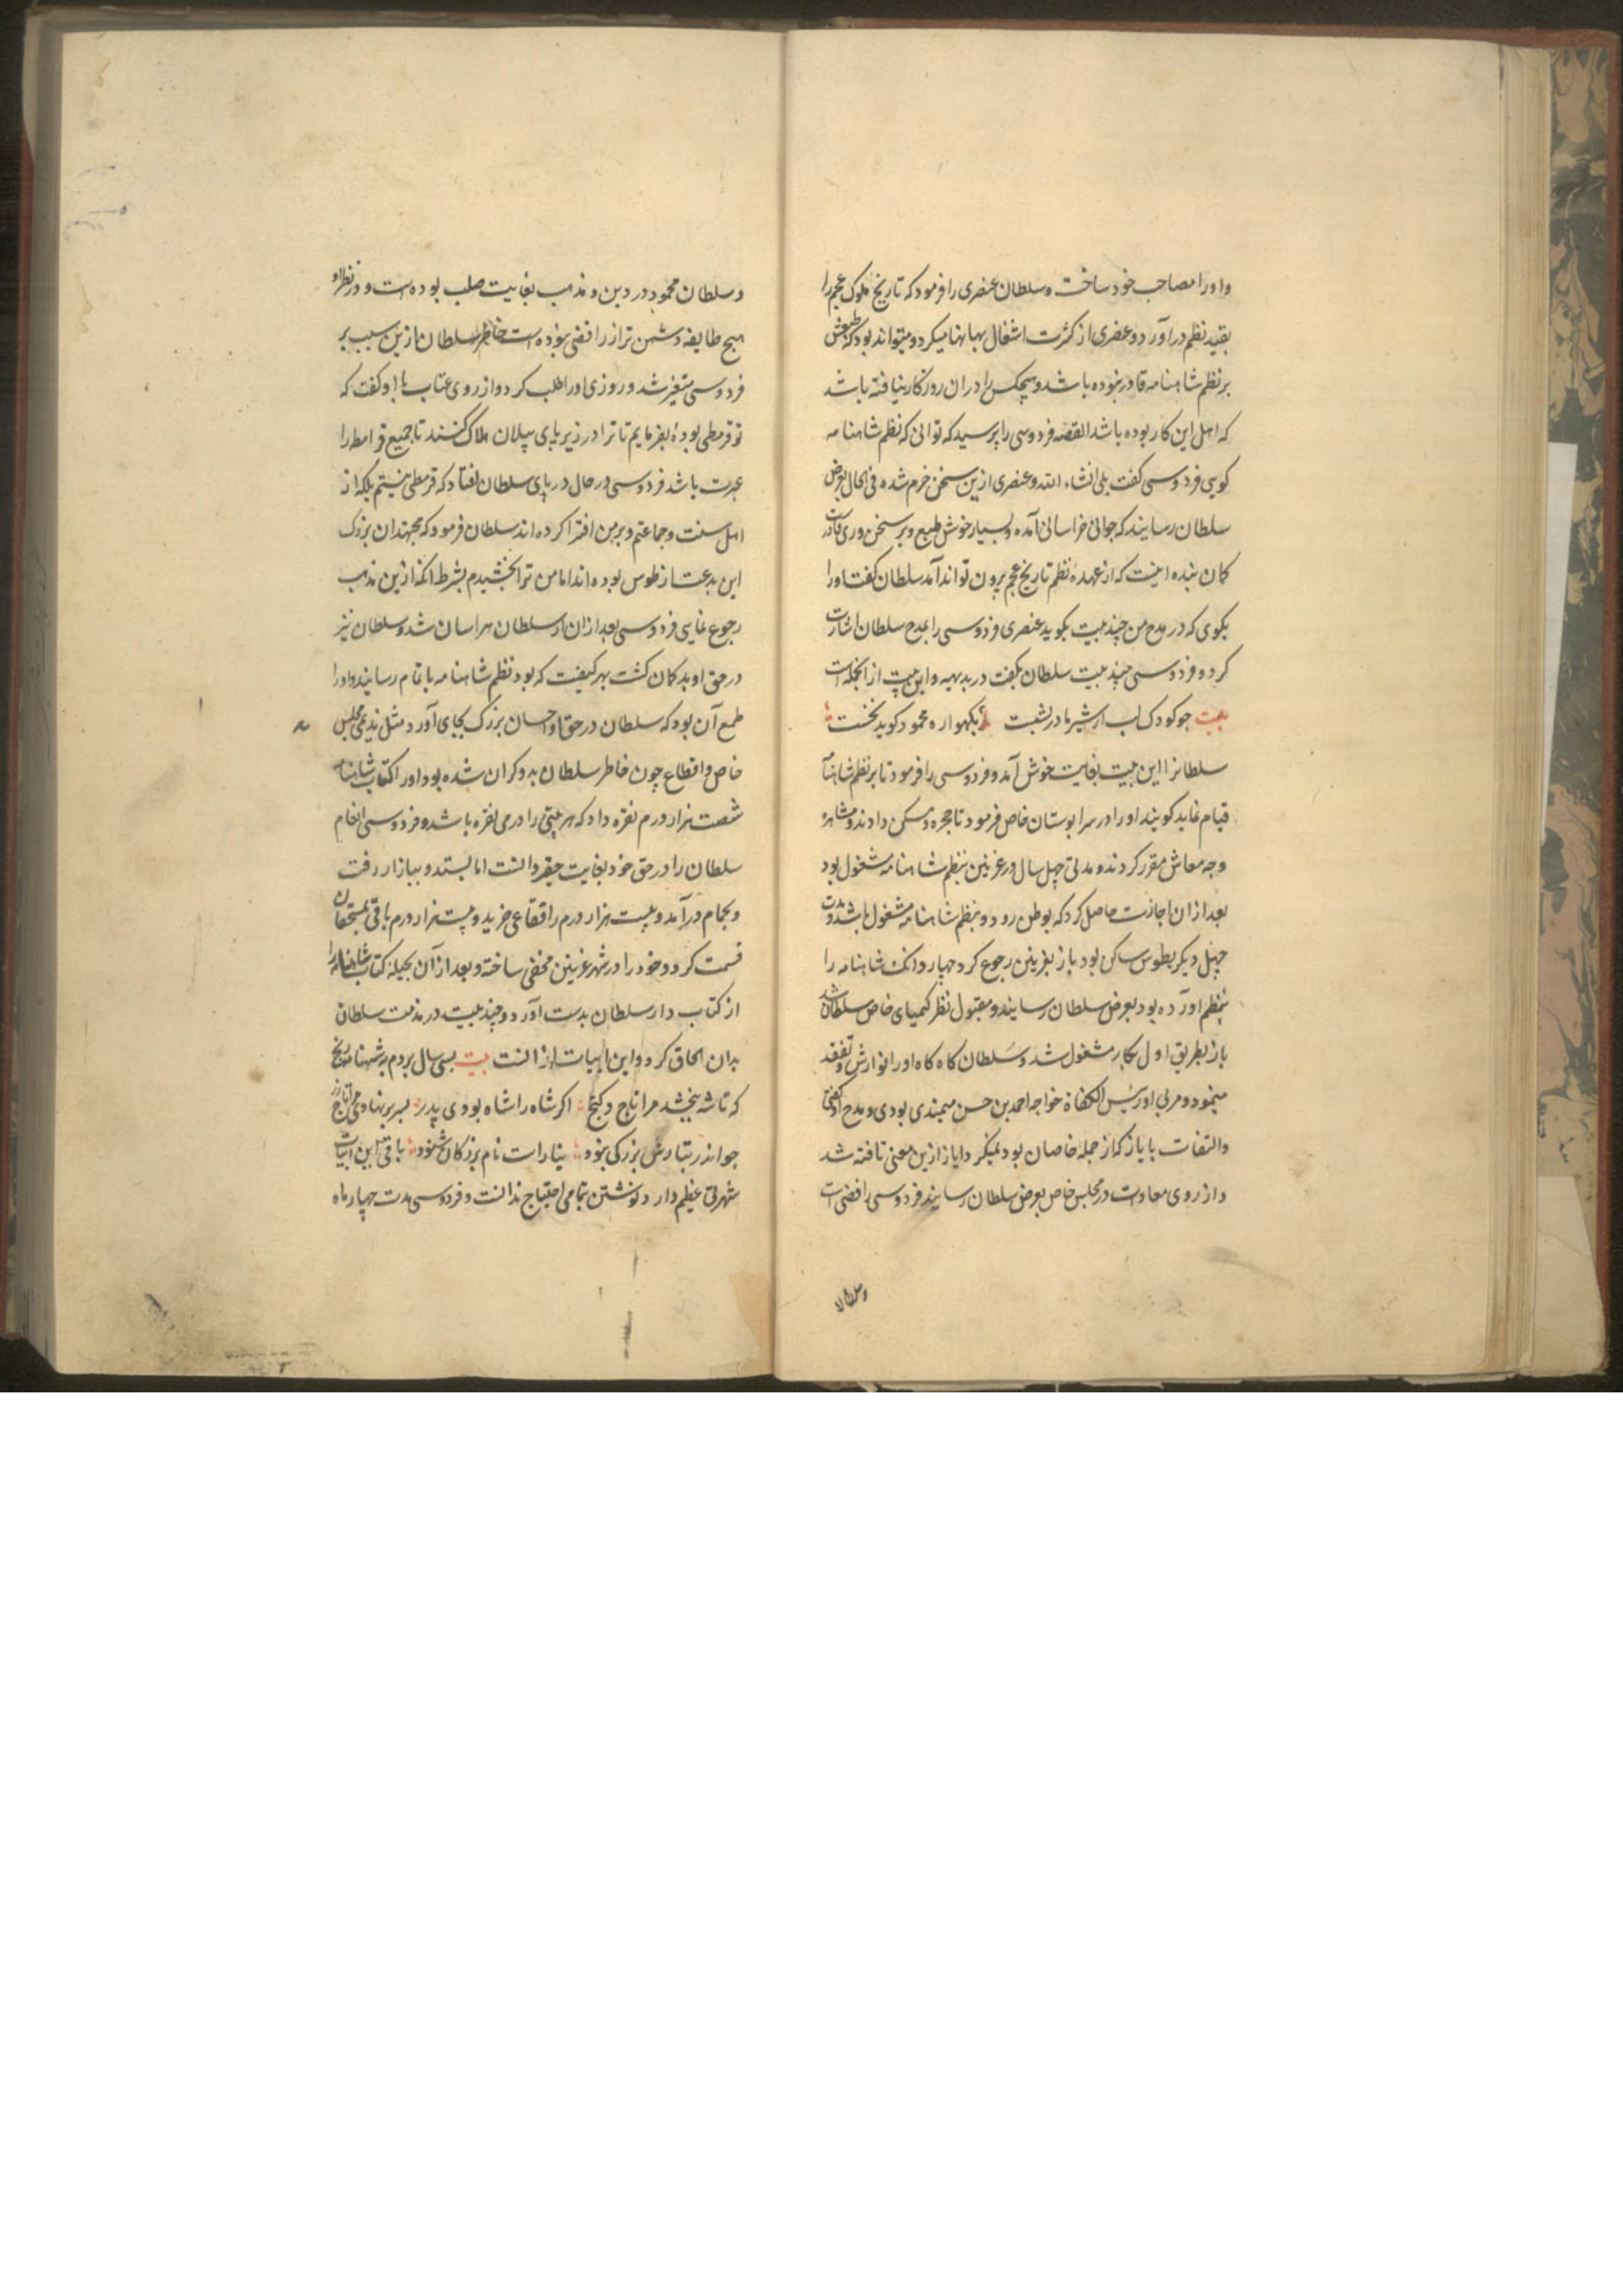 و او را مصاحب خود ساخت و سلطان عنصری را فرمود که تاریخ ملوک عجم را
بقید نظم در آورد و عنصری از کثرت اشغال بهانها میکرد و میتواند بود که طبعش
بر نظم شاهنامه قادر نبوده باشد و هیچکس را در ان روزکار نیافته باشد
که اهل این کار بوده باشد القصه فردوسی را پرسید که توانی که نظم شاهنامه
کویی فردوسی کفت بلی انشاء الله و عنصری ازین سخن خرم شده فی الحال بعرض
سلطان رسانید که جوانی خراسانی آمده و بسیار خوش طبع و بر سخن وری قادر
کمان بنده اینست که از عهدهٔ نظم تاریخ عجم برون تواند آمد سلطان کفت او را
بکوی که در مدح من چند بیت بکوید عنصری فردوسی را بمدح سلطان اشارت
کرد و فردوسی چند بیت سلطان بکفت در بدیهه و این بیت از انجمله است
بیت جو کودک لب از شیر مادر بشست بکهواره محمود کوید نخست
سلطانرا این بیت بغایت خوش آمد و فردوسی را فرمود تا بر نظم شاهنامه
قیام نماید کویند او را در سرا بوستان خاص فرمود تا حجره و مسکن دادند و مشاهره
وجه معاش مقرر کردند و مدتی چهل سال در غزنین بنظم شاهنامه مشغول بود
بعد از ان اجازت حاصل کرد که بوطن رود و بنظم شاهنامه مشغول باشد و مدت
چهل دیکر بطوس ساکن بود باز بغزنین رجوع کرد و چهار دانک شاهنامه را
بنظم اورده بود بعرض سلطان رسانید و مقبول نظر کیمیای خاص سلطان شد
باز بطریق اول بکار مشغول شد و سلطان کاه کاه او را نوازش و تفقد
مینمود و مربی او رئیس الکفاة خواجه احمد بن حسن میمندی بودی و مدح او کفتی
والتفات بایاز که از جمله خاصان بود نمیکرد ایاز ازین معنی تافته شد
و از روی معاوت در مجلس خاص بعرض سلطان رسانید فردوسی رافضی است
و سلطان
و سلطان محمود در دین و مذهب بغایت صلب بوده است و در نظر او
هیچ طایفه دشمن تر از رافضی نبوده است خاطر سلطان ازین سبب بر
فردوسی متغیر شد و روزی او را طلب کرد و از روی عتاب با او کفت که
تو قرمطی بودهٔ بفرمایم تا ترا در زیر پای پیلان هلاک کنند تا جمیع قرامطه را
عبرت باشد فردوسی در حال در پای سلطان افتاد که قرمطی نیستم بلکه از
اهل سنت و جماعتم و بر من افترا کرده اند سلطان فرمود که مجتهدان بزرک
این بدعت از طوس بوده اند اما من ترا بخشیدم بشرط انکه ازین مذهب
رجوع نمایی فردوسی بعد از ان از سلطان هراسان شد و سلطان نیز
در حق او بد کمان کشت بهر کیفیت که بود نظم شاهنامه باتمام رسانید و او را
طمع آن بود که سلطان در حق او احسان بزرک بجای آورد مثل ندیمی مجلس
خاص و اقطاع چون خاطر سلطان بدو کران شده بود او را کتاب شاهنامه
شصت هزار درم نقره داد که هر بیتی را درمی نقره باشد و فردوسی انعام
سلطان را در حق خود بغایت حقیر دانست اما بستد و ببازار رفت
و بحمام درآمد و بیست هزار درم را فقاعی خرید و بیست هزار درم باقی بمستحقان
قسمت کرد و خود را در شهر غزنین مخفی ساخته و بعد از آن بحیله کتاب شاهنامه را
از کتاب دار سلطان بدست آورد و چند بیت در مذمت سلطان
بدان الحاق کرد و این ابیات از انست بیت بسی سال بردم بشهنامه رنج
که تا شه ببخشد مرا تاج و کنج اکر شاه را شاه بودی پدر بسر بر نهادی مرا تاج زر
جو اندر تبارش بزرکی نبود نیارست نام بزرکان شنود باقی این ابیات
شهرتی عظیم دارد نوشتن بتمامی احتیاج ندانست و فردوسی مدت چهار ماه